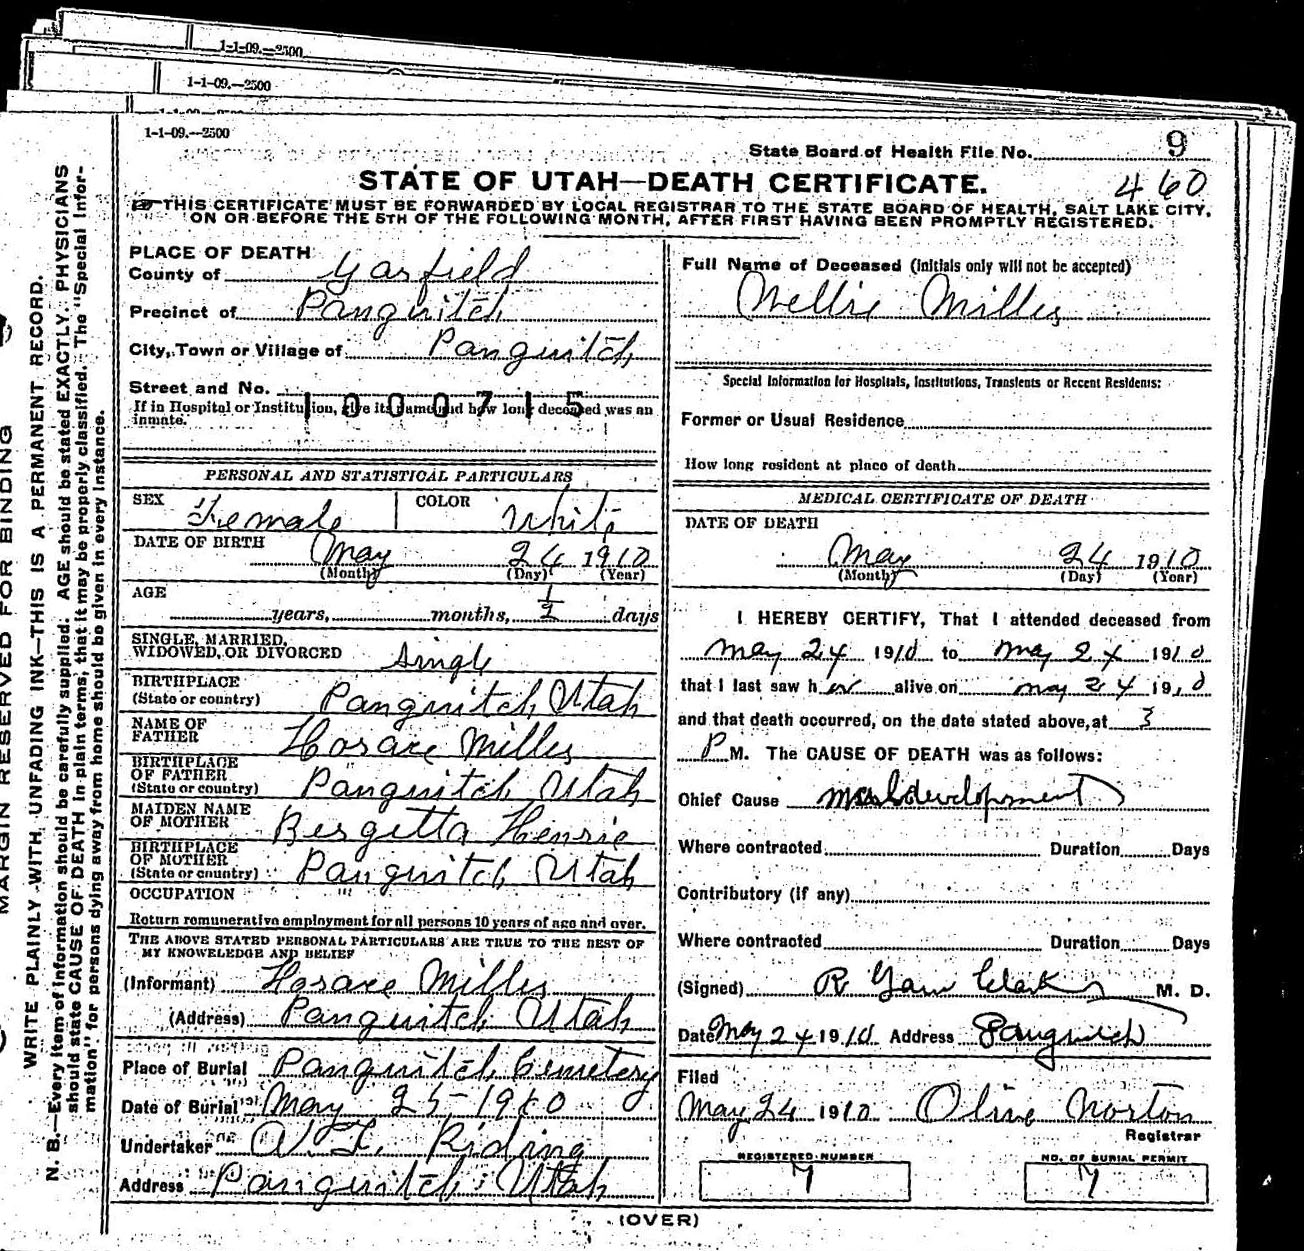 1-1-09.—2500
1-1-09.—2500
1-1-09.—2500
MARGIN RESERVED FOR BINDING
WRITE PLAINLY WITH UNFADING INK—THIS IS A PERMANENT RECORD.
N. B.—Every item of information should be carefully supplied. AGE should be stated EXACTLY. PHYSICIANS
should state CAUSE OF DEATH in plain terms, that it may be properly classified. The "Special Infor-
mation" for persons dying away from home should be given in every instance.
State Board of Health File No. 9
STATE OF UTAH—DEATH CERTIFICATE. 460
THIS CERTIFICATE MUST BE FORWARDED BY LOCAL REGISTRAR TO THE STATE BOARD OF HEALTH, SALT LAKE CITY,
ON OR BEFORE THE 5TH OF THE FOLLOWING MONTH, AFTER FIRST HAVING BEEN PROMPTLY REGISTERED.
PLACE OF DEATH
County of Garfield
Precinct of Panguitch
City, Town or Village of Panguitch
Street and No.
1000715
If in Hospital or Institution, give its name and how long deceased was an
inmate.
PERSONAL AND STATISTICAL PARTICULARS
SEX Female COLOR White
DATE OF BIRTH May 24 1910
(Month) (Day) (Year)
AGE
years, months, 1/2 days
SINGLE, MARRIED,
WIDOWED, OR DIVORCED single
BIRTHPLACE
(State or country) Panguitch Utah
NAME OF
FATHER Horace Miller
BIRTHPLACE
OF FATHER
(State or country) Panguitch Utah
MAIDEN NAME
OF MOTHER Bergetta Henrie
BIRTHPLACE
OF MOTHER
(State or country) Panguitch Utah
OCCUPATION
Return remunerative employment for all persons 10 years of age and over.
THE ABOVE STATED PERSONAL PARTICULARS ARE TRUE TO THE BEST OF
MY KNOWLEDGE AND BELIEF
(Informant) Horace Miller
(Address) Panguitch Utah
Place of Burial Panguitch Cemetery
Date of Burial May 25 1910
Undertaker Riding
Address Panguitch Utah
Full Name of Deceased (initials only will not be accepted)
Nellie Miller
Special Information for Hospitals, Institutions, Transients or Recent Residents:
Former or Usual Residence
How long resident at place of death
MEDICAL CERTIFICATE OF DEATH
DATE OF DEATH
May 24 1910
(Month) (Day) (Year)
I HEREBY CERTIFY, That I attended deceased from
May 24 1910 to May 24 1910
that I last saw her alive on May 24 1910
and that death occurred, on the date stated above, at 3
P M. The CAUSE OF DEATH was as follows:
Chief Cause
Where contracted Duration Days
Contributory (if any)
Where contracted Duration Days
(Signed) R Garn Clark M. D.
Date May 24 1910 Address Panguitch
Filed
May 24 1910 Olive Norton
Registrar
REGISTERED NUMBER
7
NO. OF BURIAL PERMIT
7
(OVER)